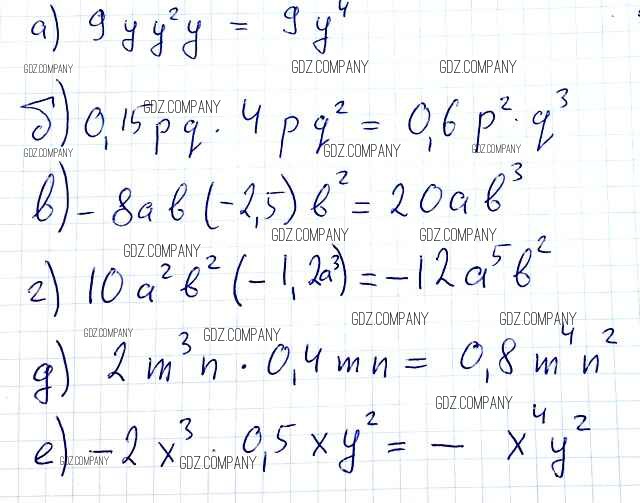 а) 9yy²y = 9y⁴
GDZ.COMPANY GDZ.COMPANY GDZ.COMPANY
GDZ.COMPANY
б) 0,15pq · 4pq² = 0,6p² · q³
GDZ.COMPANY GDZ.COMPANY GDZ.COMPANY
в) -8ab (-2,5) b² = 20ab³
GDZ.COMPANY GDZ.COMPANY GDZ.COMPANY
г) 10a²b² (-1,2a³) = -12a⁵b²
GDZ.COMPANY GDZ.COMPANY
GDZ.COMPANY GDZ.COMPANY
д) 2m³n · 0,4mn = 0,8m⁴n²
GDZ.COMPANY
е) -2x³ · 0,5xy² = - x⁴y²
GDZ.COMPANY GDZ.COMPANY